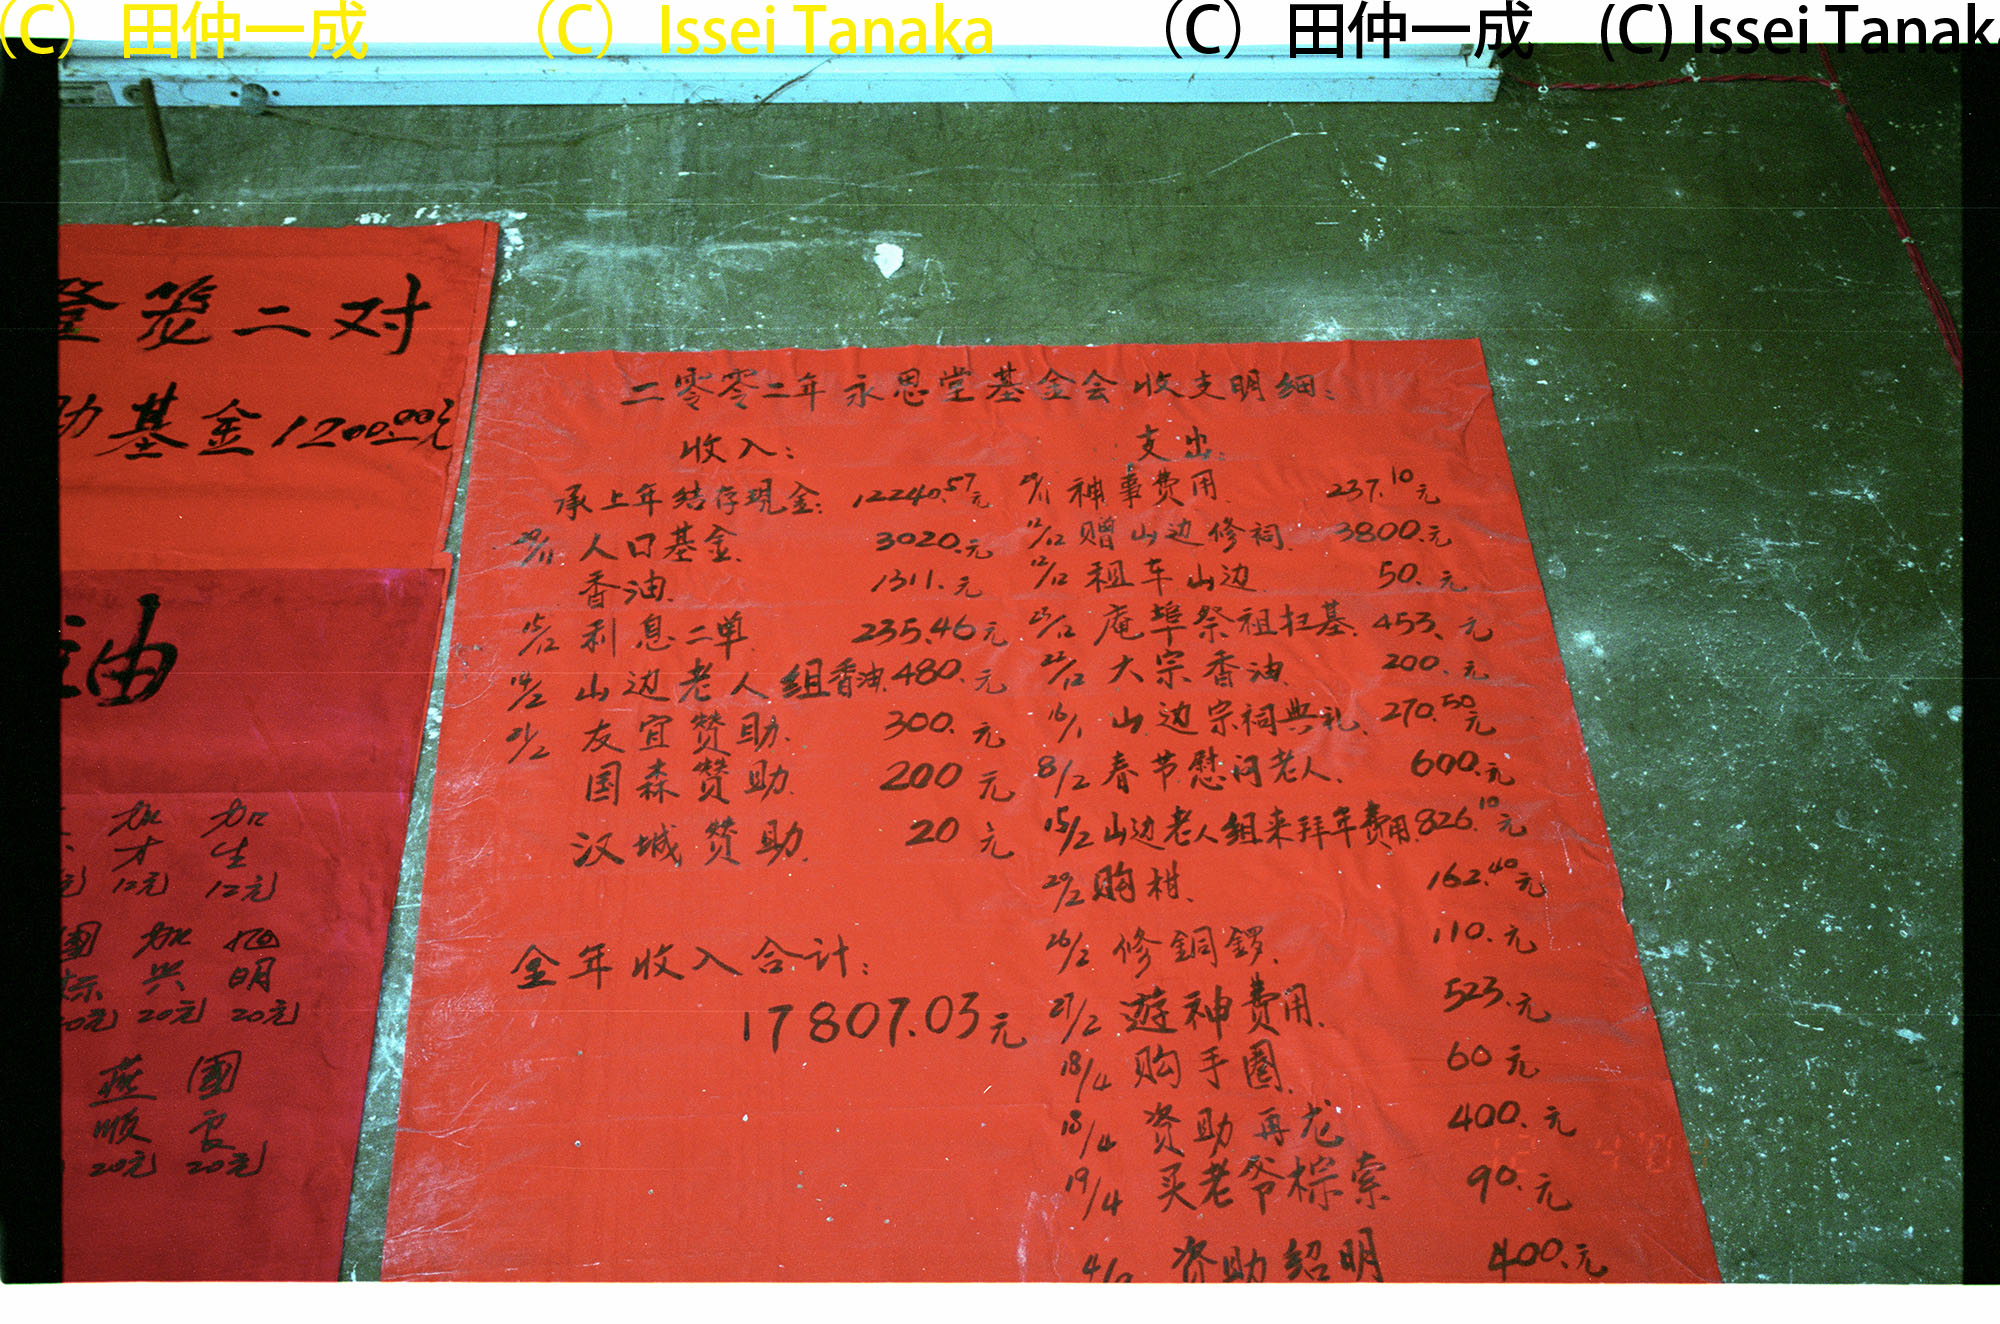 (C) 田仲一成 (C) Issei Tanaka (C) 田仲一成 (C) Issei Tanaka
二对
助基金1200.00元
油
加才12元
加生12元
加兴20元
旭明20元
燕顺20元
國良20元
二零零二年永思堂基金会收支明细:
收入:
承上年结存现金: 12240.57元
29/11 人口基金. 3020.元
香油. 1311.元
15/12 利息二单 235.46元
14/2 山边老人组香油. 480.元
21/2 友宜赞助. 300.元
国森赞助. 200元
汉城赞助. 20元
全年收入合计:
17807.03元
支出:
29/11 神事费用. 237.10元
12/12 赠山边修祠. 3800.元
12/12 租车山边 50.元
23/12 庵埠祭祖扫墓. 453.元
22/12 大宗香油. 200.元
16/1 山边宗祠典礼. 270.50元
8/2 春节慰问老人. 600.元
15/2 山边老人组来拜年费用. 826.10元
20/2 购柑. 162.40元
26/2 修铜锣. 110.元
27/2 遊神费用. 523.元
18/4 购手圈. 60元
18/4 资助再龙 400.元
19/4 买老爷棕索 90.元
资助绍明 400.元